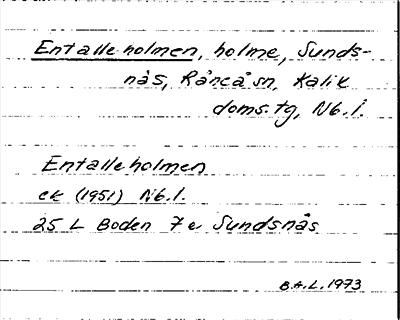 Entalleholmen, holme, Sunds-
näs, Råneå sn, Kalix
doms. tg, Nb. l.
Entalleholmen
ek (1951) Nb. l.
25 L Boden 7 e Sundsnäs
B.A.L. 1973